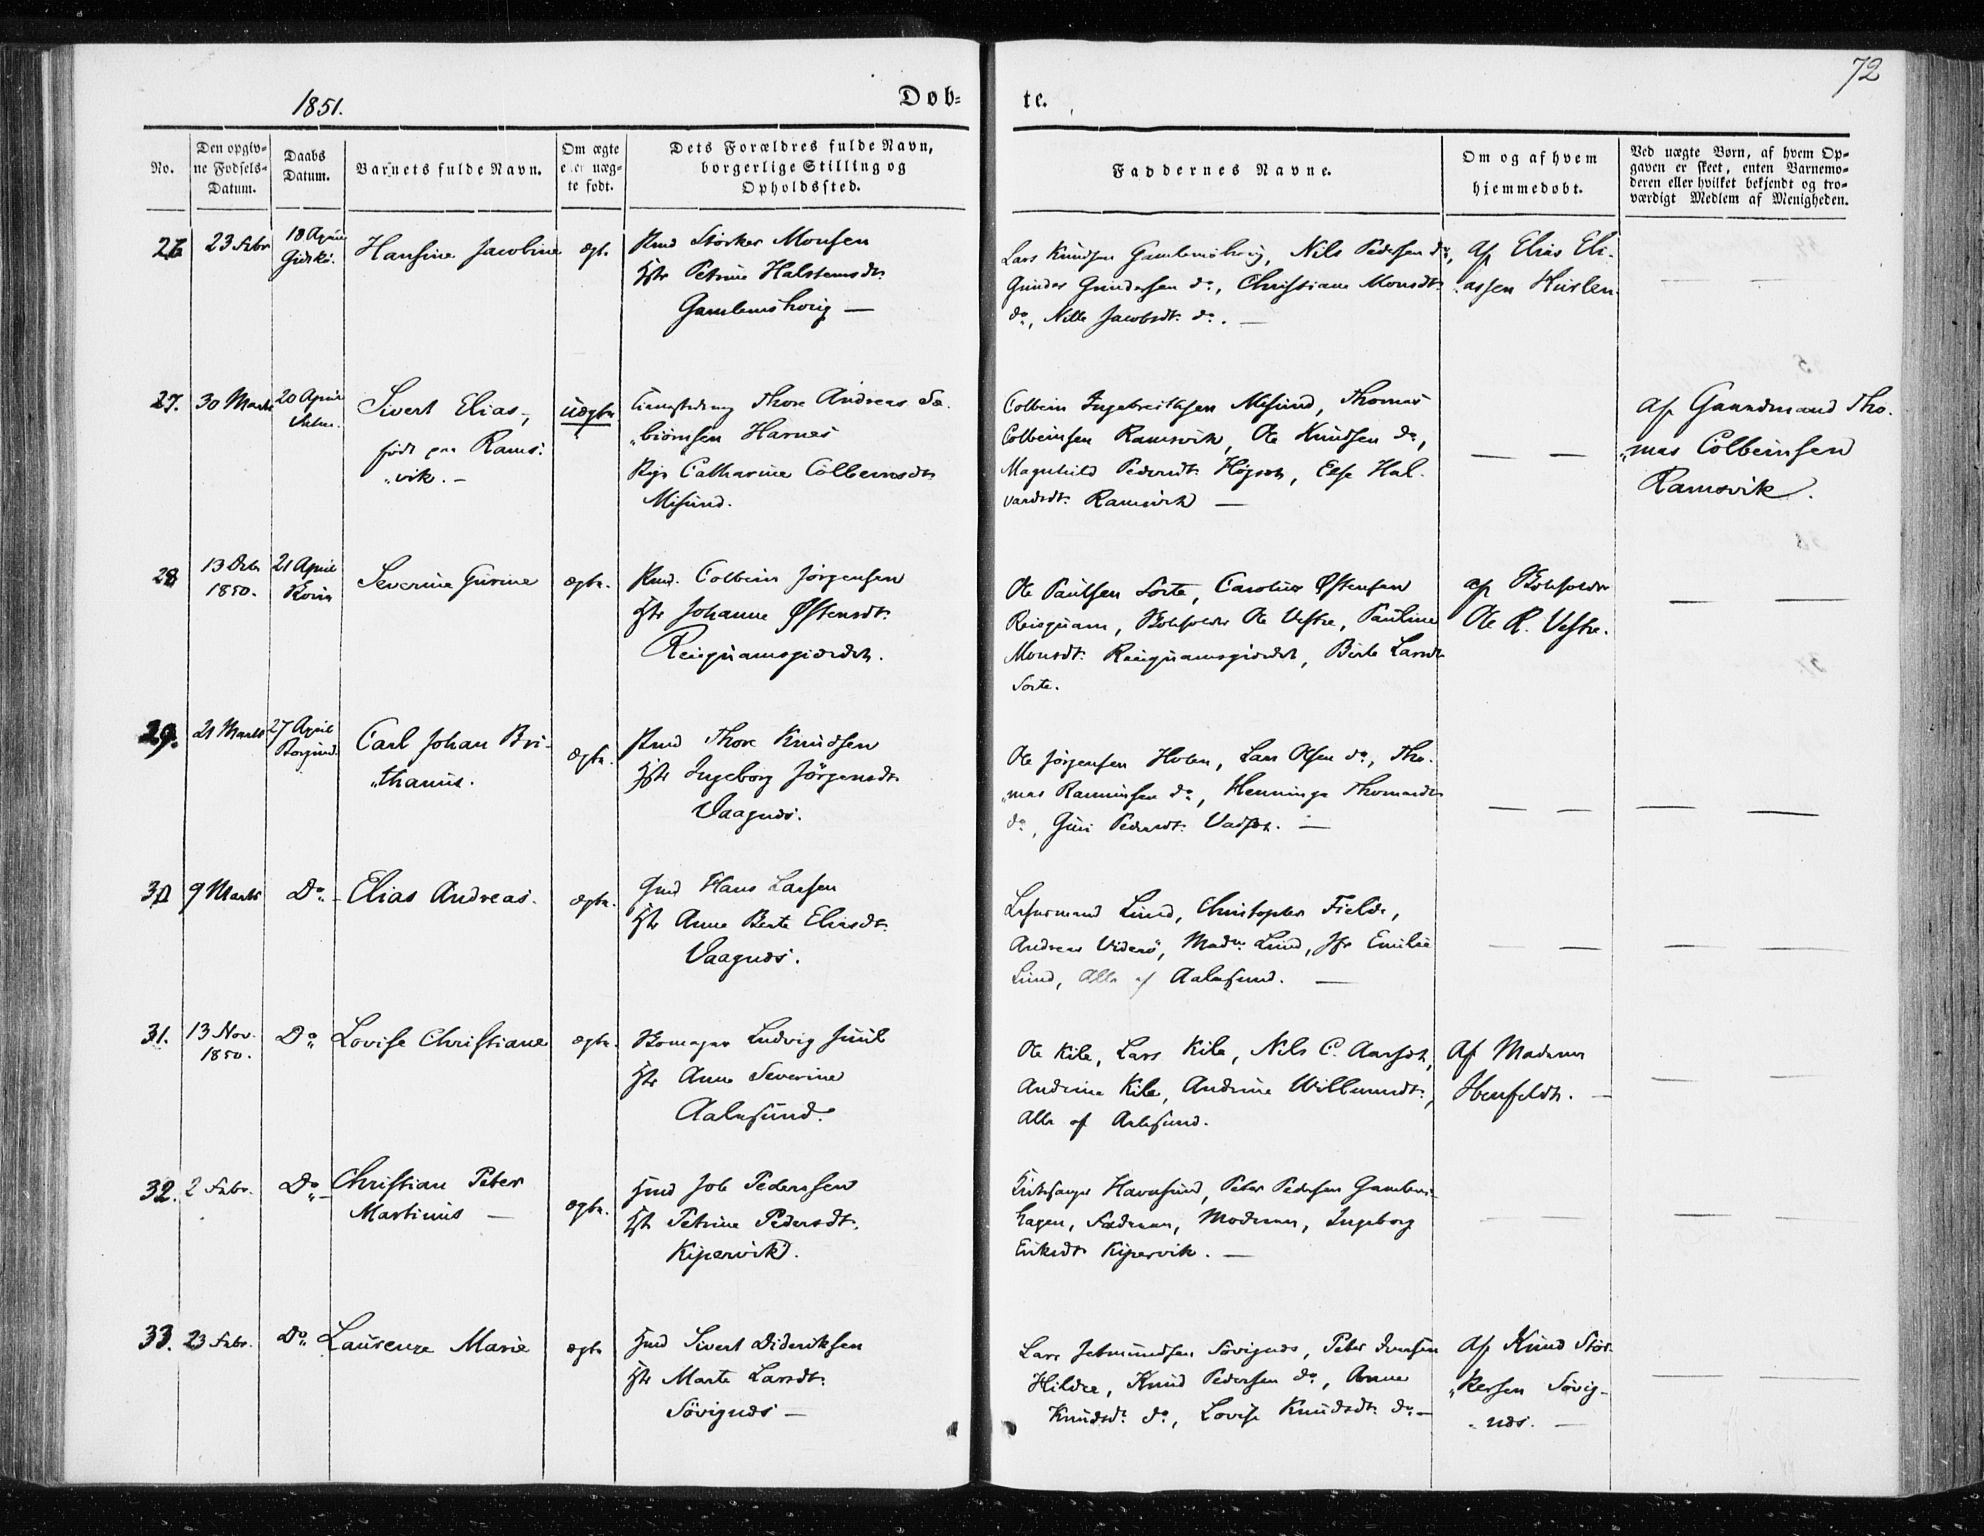 72
1851.
Døb=
te.
No.
Den opgiv=
ne Fødsels=
Datum.
Daabs
Datum.
Barnets fulde Navn.
Om ægte
eller uæg=
te født.
Dets Forældres fulde Navn,
borgerlige Stilling og
Opholdssted.
Faddernes Navne.
Om og af hvem
hjemmedøbt.
Ved uægte Børn, af hvem Op=
gaven er skeet, enten Barnemo=
deren eller hvilket bekjendt og tro=
værdigt Medlem af Menigheden.
26
23 Febr
18 April
Gidske.
Hansine Jacobine
ægt.
Storker Monsen
Petrine Halstensdt.
Lars Knudsen Nils Pedersen do,
Gunder Gundersen do, Christiane Monsdt.
do, Nille Jacobsdt. do. —
Af Elias Eli-
assen
— —
27.
30 Marts
20 April
Sivert Elias,
født paa Rams-
vik. —
uægte
Thore Andreas
biørnsen Harnes
Pige Catharine Colbensdt.
Misund.
Colbein Ingebreitsen Misund, Thomas
Colbeinsen Ramsvik, Ole Knudsen do,
Magnhild Pedersdt. Else Hal-
vardsdt. Ramsvik —
— —
Af Gaardmand Tho-
mas Colbeinsen
Ramsvik.
28
13 Decbr
1850.
21 April
Severine Gurine
ægte.
Colbein Jørgensen
Johanne Østensdt.
Ole Paulsen Sorte, Østensen
Ole Vestre, Pauline
Monsdt. Berte Larsdt
Sorte.
af
Ole R. Vestre.
— —
29.
21 Marts
27 April
Borgund
Carl Johan Bri-
thanus.
ægte.
Thore Knudsen
Ingeborg Jørgensdt.
Vaagnæs.
Ole Jørgensen Holen, Lars Olsen do, Tho-
mas do, Henninge Thomasdt
do, Guri Pedersdt. —
— —
— —
30
9 Marts
Do
Elias Andreas.
ægte.
Gmd Hans Larsen
Anne Berte Eliasdt.
Vaagnæs.
Lund, Christopher Fielde,
Andreas Viderø, Madm Lund, Jfr Emilie
Lund, Alle af Aalesund. —
— —
— —
31.
13 Nov.
1850.
Do
Lovise Christiane
ægte.
Ludvig Juul
Anne Severine
Aalesund.
Ole Kile, Lars Kile, Nils C.
Andrine Kile, Andrine
Alle af Aalesund.
Af Madam
— —
32.
2 Febr.
Do
Christian Peter
Martinus —
ægte.
Hmd Job Pedersen
Petrine Pedersdt.
Kipervik.
Peter Pedersen
hagen, Faderen, Moderen, Ingeborg
Eriksdt. Kipervik. —
— —
— —
33.
23 Febr.
Do
Laurenze Marie
ægte
Hmd Sivert Dideriksen
Marte Larsdt.
Søvignæs —
Lars Jetmundsen Søvignæs, Peter Iversen
Hildre, Knud Pedersen do, Anne
Knudsdt. do, Lovise Knudsdt. do —
Af Knud Stor-
kersen Søvig-
næs. —
— —